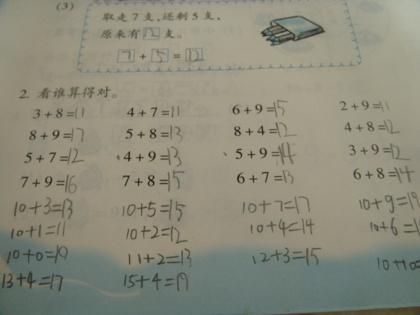 (3)
取走7支,还剩5支。
原来有12支。
7+5=12
2. 看谁算得对。
3+8=11 4+7=11 6+9=15 2+9=11
8+9=17 5+8=13 8+4=12 4+8=12
5+7=12 4+9=13 5+9=14 3+9=12
7+9=16 7+8=15 6+7=13 6+8=14
10+3=13 10+5=15 10+7=17 10+9=19
10+1=11 10+2=12 10+4=14 10+6=1
10+0=10 11+2=13 12+3=15 10+10=
13+4=17 15+4=19